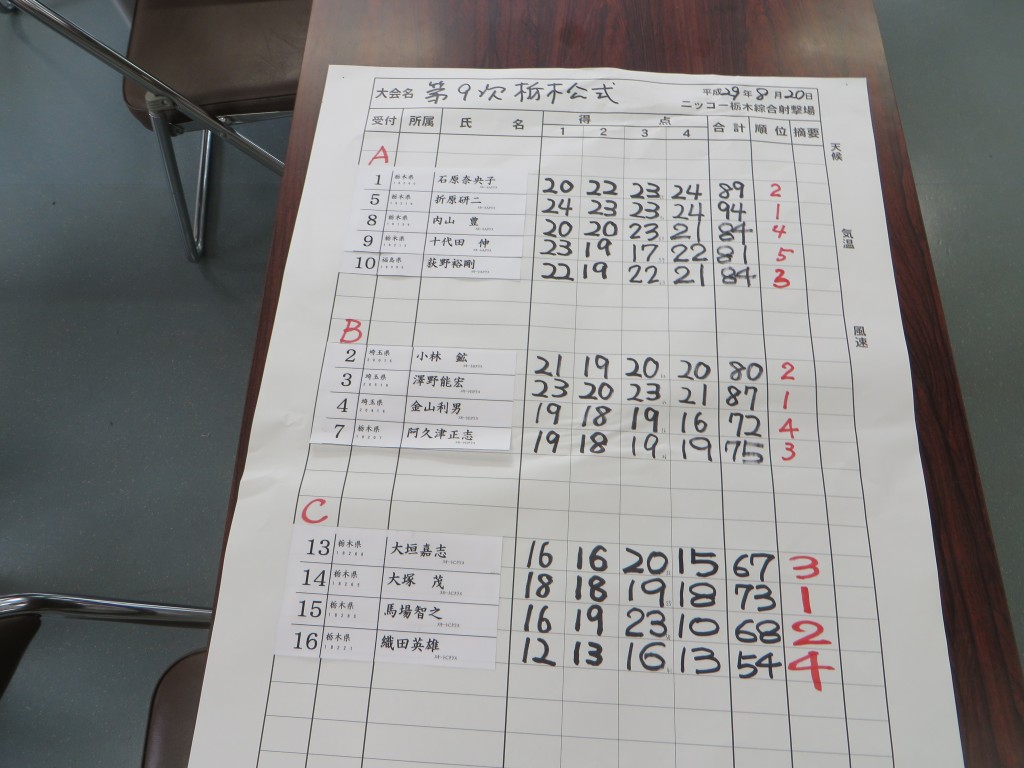 大会名 第9次栃木公式 平成29年8月20日
ニッコー栃木綜合射撃場
受付 所属 氏名 得点 合計 順位 摘要
1 2 3 4
天候
気温
風速
A
1 栃木県 石原奈央子 20 22 23 24 89 2
5 栃木県 折原研二 24 23 23 24 94 1
8 栃木県 内山 豊 20 20 23 21 84 4
9 栃木県 十代田 伸 23 19 17 22 81 5
10 福島県 荻野裕剛 22 19 22 21 84 3
B
2 埼玉県 小林 鉱 21 19 20 20 80 2
3 埼玉県 澤野能宏 23 20 23 21 87 1
4 埼玉県 金山利男 19 18 19 16 72 4
7 栃木県 阿久津正志 19 18 19 19 75 3
C
13 栃木県 大垣嘉志 16 16 20 15 67 3
14 栃木県 大塚 茂 18 18 19 18 73 1
15 栃木県 馬場智之 16 19 23 10 68 2
16 栃木県 織田英雄 12 13 16 13 54 4